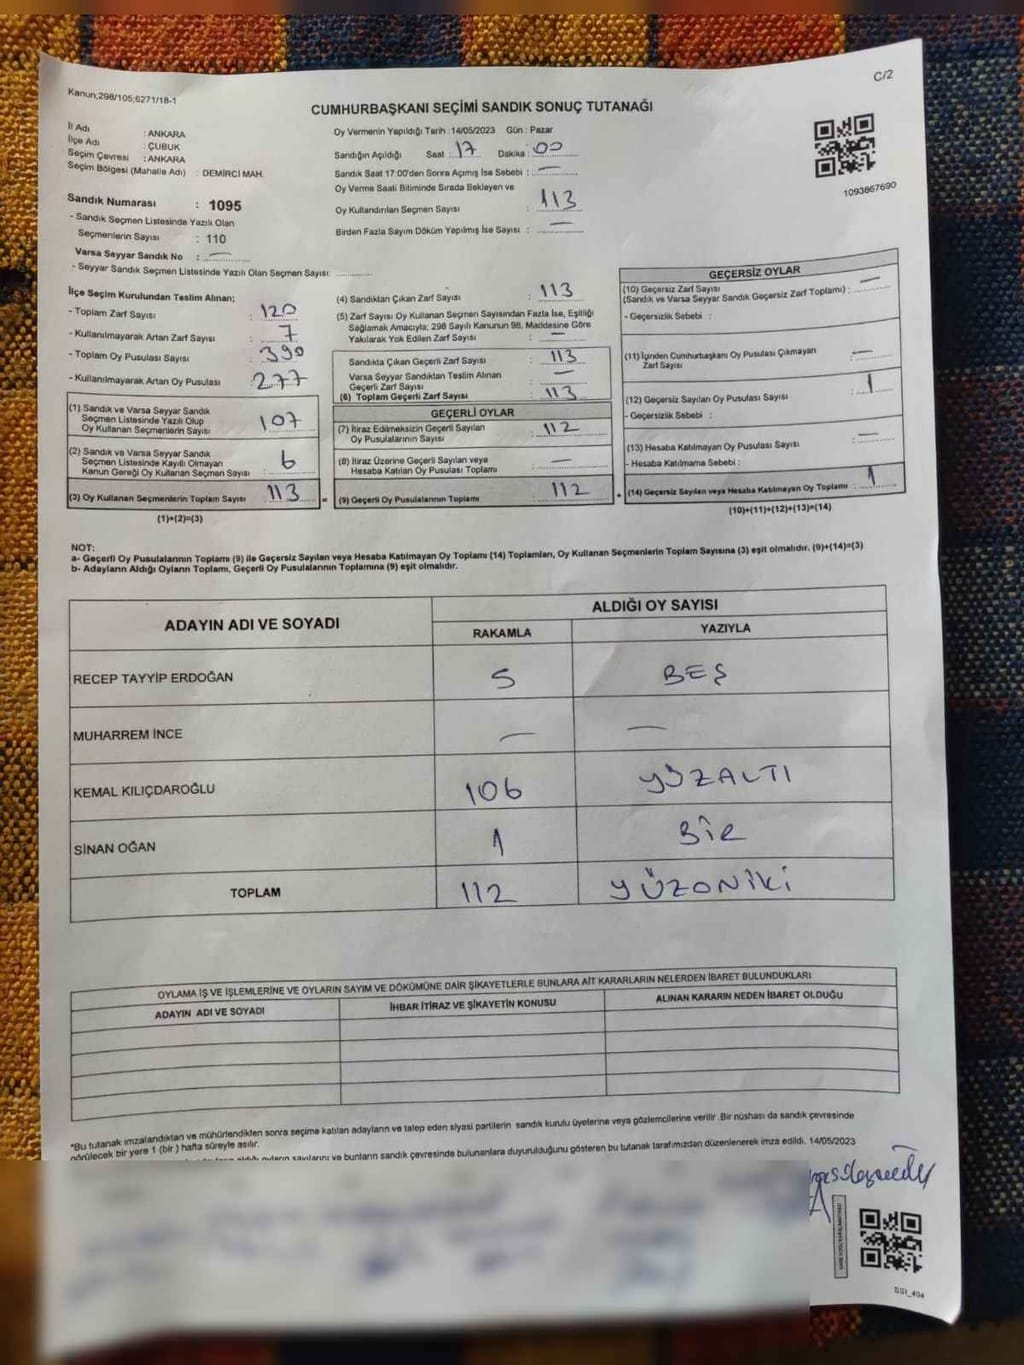 Kanun;298/105;6271/18-1
C/2
CUMHURBAŞKANI SEÇİMİ SANDIK SONUÇ TUTANAĞI
İl Adı : ANKARA
İlçe Adı : ÇUBUK
Seçim Çevresi : ANKARA
Seçim Bölgesi (Mahalle Adı) : DEMİRCİ MAH.
Sandık Numarası : 1095
- Sandık Seçmen Listesinde Yazılı Olan
Seçmenlerin Sayısı : 110
Varsa Seyyar Sandık No : —
- Seyyar Sandık Seçmen Listesinde Yazılı Olan Seçmen Sayısı: ............
Oy Vermenin Yapıldığı Tarih : 14/05/2023 Gün : Pazar
Sandığın Açıldığı Saat : 17 Dakika : 00
Sandık Saat 17:00'den Sonra Açımış İse Sebebi : —
Oy Verme Saati Bitiminde Sırada Bekleyen ve
Oy Kullandırılan Seçmen Sayısı : 113
Birden Fazla Sayım Döküm Yapılmış İse Sayısı : —
1093867690
İlçe Seçim Kurulundan Teslim Alınan;
- Toplam Zarf Sayısı : 120
- Kullanılmayarak Artan Zarf Sayısı : 7
- Toplam Oy Pusulası Sayısı : 390
- Kullanılmayarak Artan Oy Pusulası : 277
(1) Sandık ve Varsa Seyyar Sandık
Seçmen Listesinde Yazılı Olup
Oy Kullanan Seçmenlerin Sayısı : 107
(2) Sandık ve Varsa Seyyar Sandık
Seçmen Listesinde Kayıtlı Olmayan
Kanun Gereği Oy Kullanan Seçmen Sayısı : 6
(3) Oy Kullanan Seçmenlerin Toplam Sayısı : 113
(1)+(2)=(3)
(4) Sandıktan Çıkan Zarf Sayısı : 113
(5) Zarf Sayısı Oy Kullanan Seçmen Sayısından Fazla İse, Eşitliği
Sağlamak Amacıyla; 298 Sayılı Kanunun 98. Maddesine Göre
Yakılarak Yok Edilen Zarf Sayısı : —
Sandıkta Çıkan Geçerli Zarf Sayısı : 113
Varsa Seyyar Sandıktan Teslim Alınan
Geçerli Zarf Sayısı : —
(6) Toplam Geçerli Zarf Sayısı : 113
GEÇERLİ OYLAR
(7) İtiraz Edilmeksizin Geçerli Sayılan
Oy Pusulalarının Sayısı : 112
(8) İtiraz Üzerine Geçerli Sayılan veya
Hesaba Katılan Oy Pusulası Toplamı : —
= (9) Geçerli Oy Pusulalarının Toplamı : 112
GEÇERSİZ OYLAR
(10) Geçersiz Zarf Sayısı
(Sandık ve Varsa Seyyar Sandık Geçersiz Zarf Toplamı) : —
- Geçersizlik Sebebi :
(11) İçinden Cumhurbaşkanı Oy Pusulası Çıkmayan
Zarf Sayısı : —
(12) Geçersiz Sayılan Oy Pusulası Sayısı : 1
- Geçersizlik Sebebi :
(13) Hesaba Katılmayan Oy Pusulası Sayısı : —
- Hesaba Katılmama Sebebi :
+ (14) Geçersiz Sayılan veya Hesaba Katılmayan Oy Toplamı : 1
(10)+(11)+(12)+(13)=(14)
NOT:
a- Geçerli Oy Pusulalarının Toplamı (9) ile Geçersiz Sayılan veya Hesaba Katılmayan Oy Toplamı (14) Toplamları, Oy Kullanan Seçmenlerin Toplam Sayısına (3) eşit olmalıdır. (9)+(14)=(3)
b- Adayların Aldığı Oyların Toplamı, Geçerli Oy Pusulalarının Toplamına (9) eşit olmalıdır.
ADAYIN ADI VE SOYADI
ALDIĞI OY SAYISI
RAKAMLA YAZIYLA
RECEP TAYYİP ERDOĞAN 5 BEŞ
MUHARREM İNCE — —
KEMAL KILIÇDAROĞLU 106 YÜZALTI
SİNAN OĞAN 1 BİR
TOPLAM 112 YÜZONİKİ
OYLAMA İŞ VE İŞLEMLERİNE VE OYLARIN SAYIM VE DÖKÜMÜNE DAİR ŞİKAYETLERLE BUNLARA AİT KARARLARIN NELERDEN İBARET BULUNDUKLARI
ADAYIN ADI VE SOYADI İHBAR İTİRAZ VE ŞİKAYETİN KONUSU ALINAN KARARIN NEDEN İBARET OLDUĞU
*Bu tutanak imzalandıktan ve mühürlendikten sonra seçime katılan adayların ve talep eden siyasi partilerin sandık kurulu üyelerine veya gözlemcilerine verilir .Bir nüshası da sandık çevresinde
görülecek bir yere 1 (bir) hafta süreyle asılır.
oyların sayılarını ve bunların sandık çevresinde bulunanlara duyurulduğunu gösteren bu tutanak tarafımızdan düzenlenerek imza edildi. 14/05/2023
SSI_404